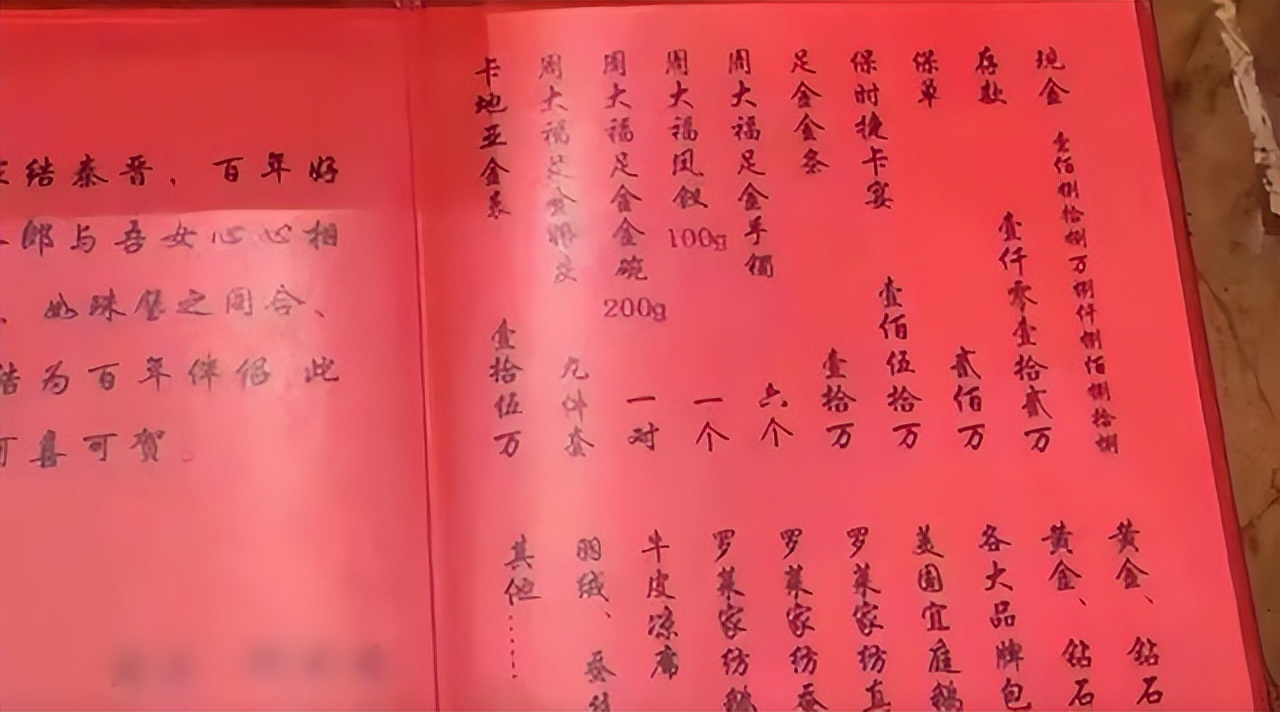 结秦晋、百年好
郎与吾女心心相
、如珠之同合、
结为百年伴侣 此
可喜可贺。
现金 壹佰捌拾捌万捌仟捌佰捌拾捌
存款 壹仟零壹拾贰万
保单 贰佰万
保时捷卡宴 壹佰伍拾万
足金金条 壹拾万
周大福足金手镯 六个
周大福凤钗100g 一个
周大福足金金碗200g 一对
周大福足金 九件套
卡地亚金表 壹拾伍万
黄金、钻石
黄金、钻石
各大品牌包
美国宜庭鹅
罗莱家纺真
罗莱家纺蚕
罗莱家纺鹅
牛皮凉席
羽绒、蚕丝
其他……